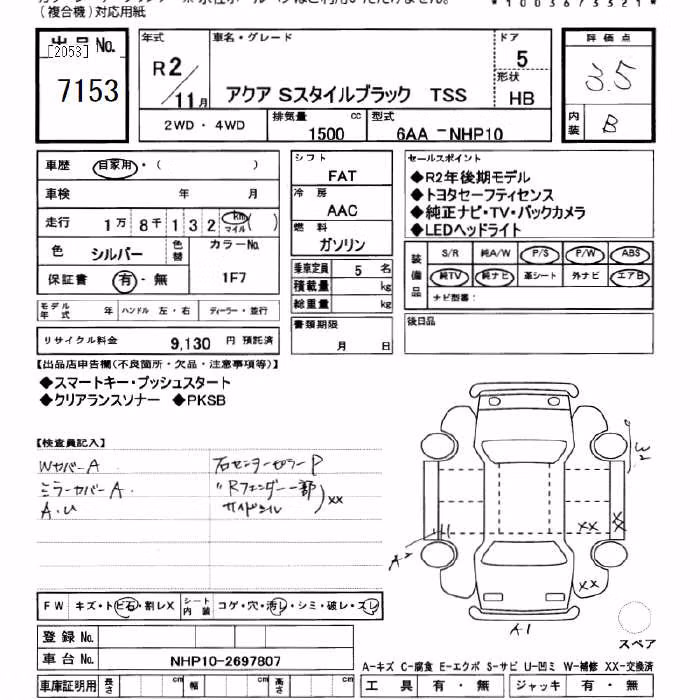 (複合機)対応用紙
*10036753​21*
出品No.
[2053]
7153
年式
R2/11月
車名・グレード
アクア Sスタイルブラック TSS
ドア
5
形状
HB
評価点
3.5
内装
B
2WD・4WD
排気量
1500
cc
型式
6AA-NHP10
車歴
自家用・( )
車検 年 月
走行 1万8千132 km マイル ( )
色 シルバー
色替
カラーNo.
1F7
保証書 有・無
モデル年式 年
ハンドル 左・右
ディーラー・並行
リサイクル料金 9,130 円 預託済
シフト
FAT
冷房
AAC
燃料
ガソリン
乗車定員 5 名
積載量 kg
総重量 kg
書類期限
月 日
セールスポイント
◆R2年後期モデル
◆トヨタセーフティセンス
◆純正ナビ・TV・バックカメラ
◆LEDヘッドライト
装備品
S/R 純A/W P/S P/W ABS
純TV 純ナビ 革シート 外ナビ エアB
ナビ型番:
後日品
【出品店申告欄(不良箇所・欠品・注意事項等)】
◆スマートキー・プッシュスタート
◆クリアランスソナー ◆PKSB
【検査員記入】
WカバーA
ミラーカバーA.
A.U
右センターピラーP
〃Rフェンダー一部
サイドシル
XX
W2
XX
XX
XX
A2
A1
スペア
FW キズ・ヒビ石・割レX
シート内装 コゲ・穴・汚レ・シミ・破レ・スレ
登録No.
車台No. NHP10-2697807
車庫証明用 長さ cm 幅 cm 高さ cm
A-キズ C-腐食 E-エクボ S-サビ U-凹ミ W-補修 XX-交換済
工具 有・無 ジャッキ 有・無